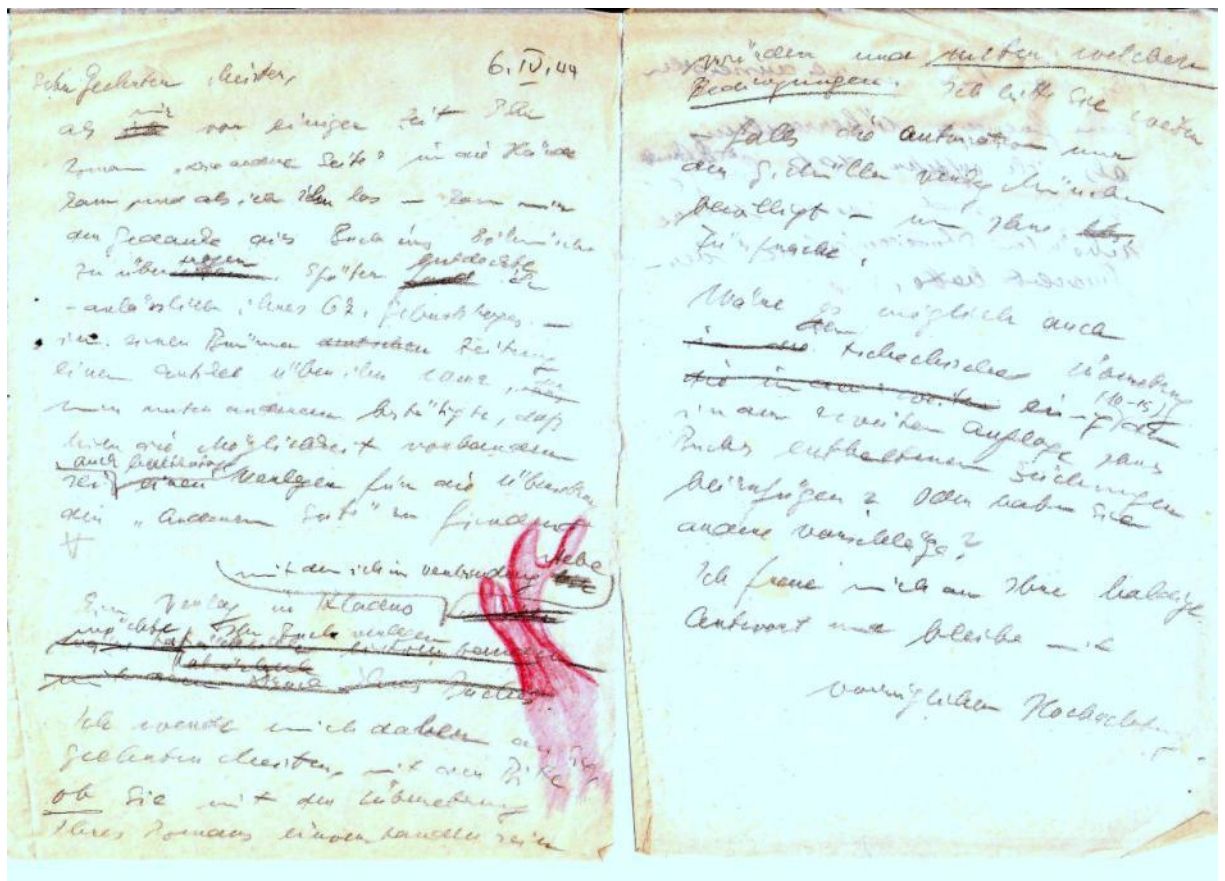 6. IV. 44
Sehr geehrter Meister,
als mir vor einiger Zeit Ihr
Roman „die andere Seite" in die Hände
kam und als ich ihn las – kam mir
der Gedanke dies Buch ins Böhmische
zu übertragen. Später
– anlässlich Ihres 67. Geburtstages –
in einer Brünner deutschen Zeitung
einen Artikel über ihn
mir unter anderem bestätigte, daß
hier die Möglichkeit vorhanden
auch
sei einen Verleger für die
der „Anderen Seite" zu finden
mit dem ich in Verbindung stehe
Ein Verlag in Kladno
möchte Ihr Buch verlegen
mit dem Ihres Buches
Ich wende mich daher an Sie,
geehrter Meister, mit der Bitte
ob Sie mit der Übersetzung
Ihres Romans einverstanden sein
würden und unter welchen
Bedingungen. Ich bitte Sie weiter
falls die Autorisation nur
der G. Müller Verlag München
bewilligt – um Ihre
Fürsprache.
Wäre es möglich auch
der
in die tschechische
die in der zweiten einige (10–15)
in der zweiten Auflage Ihres
Buches enthaltenen Zeichnungen
beizufügen? Oder haben Sie
andere Vorschläge?
Ich freue mich auf Ihre baldige
Antwort und bleibe mit
vorzüglicher Hochachtung